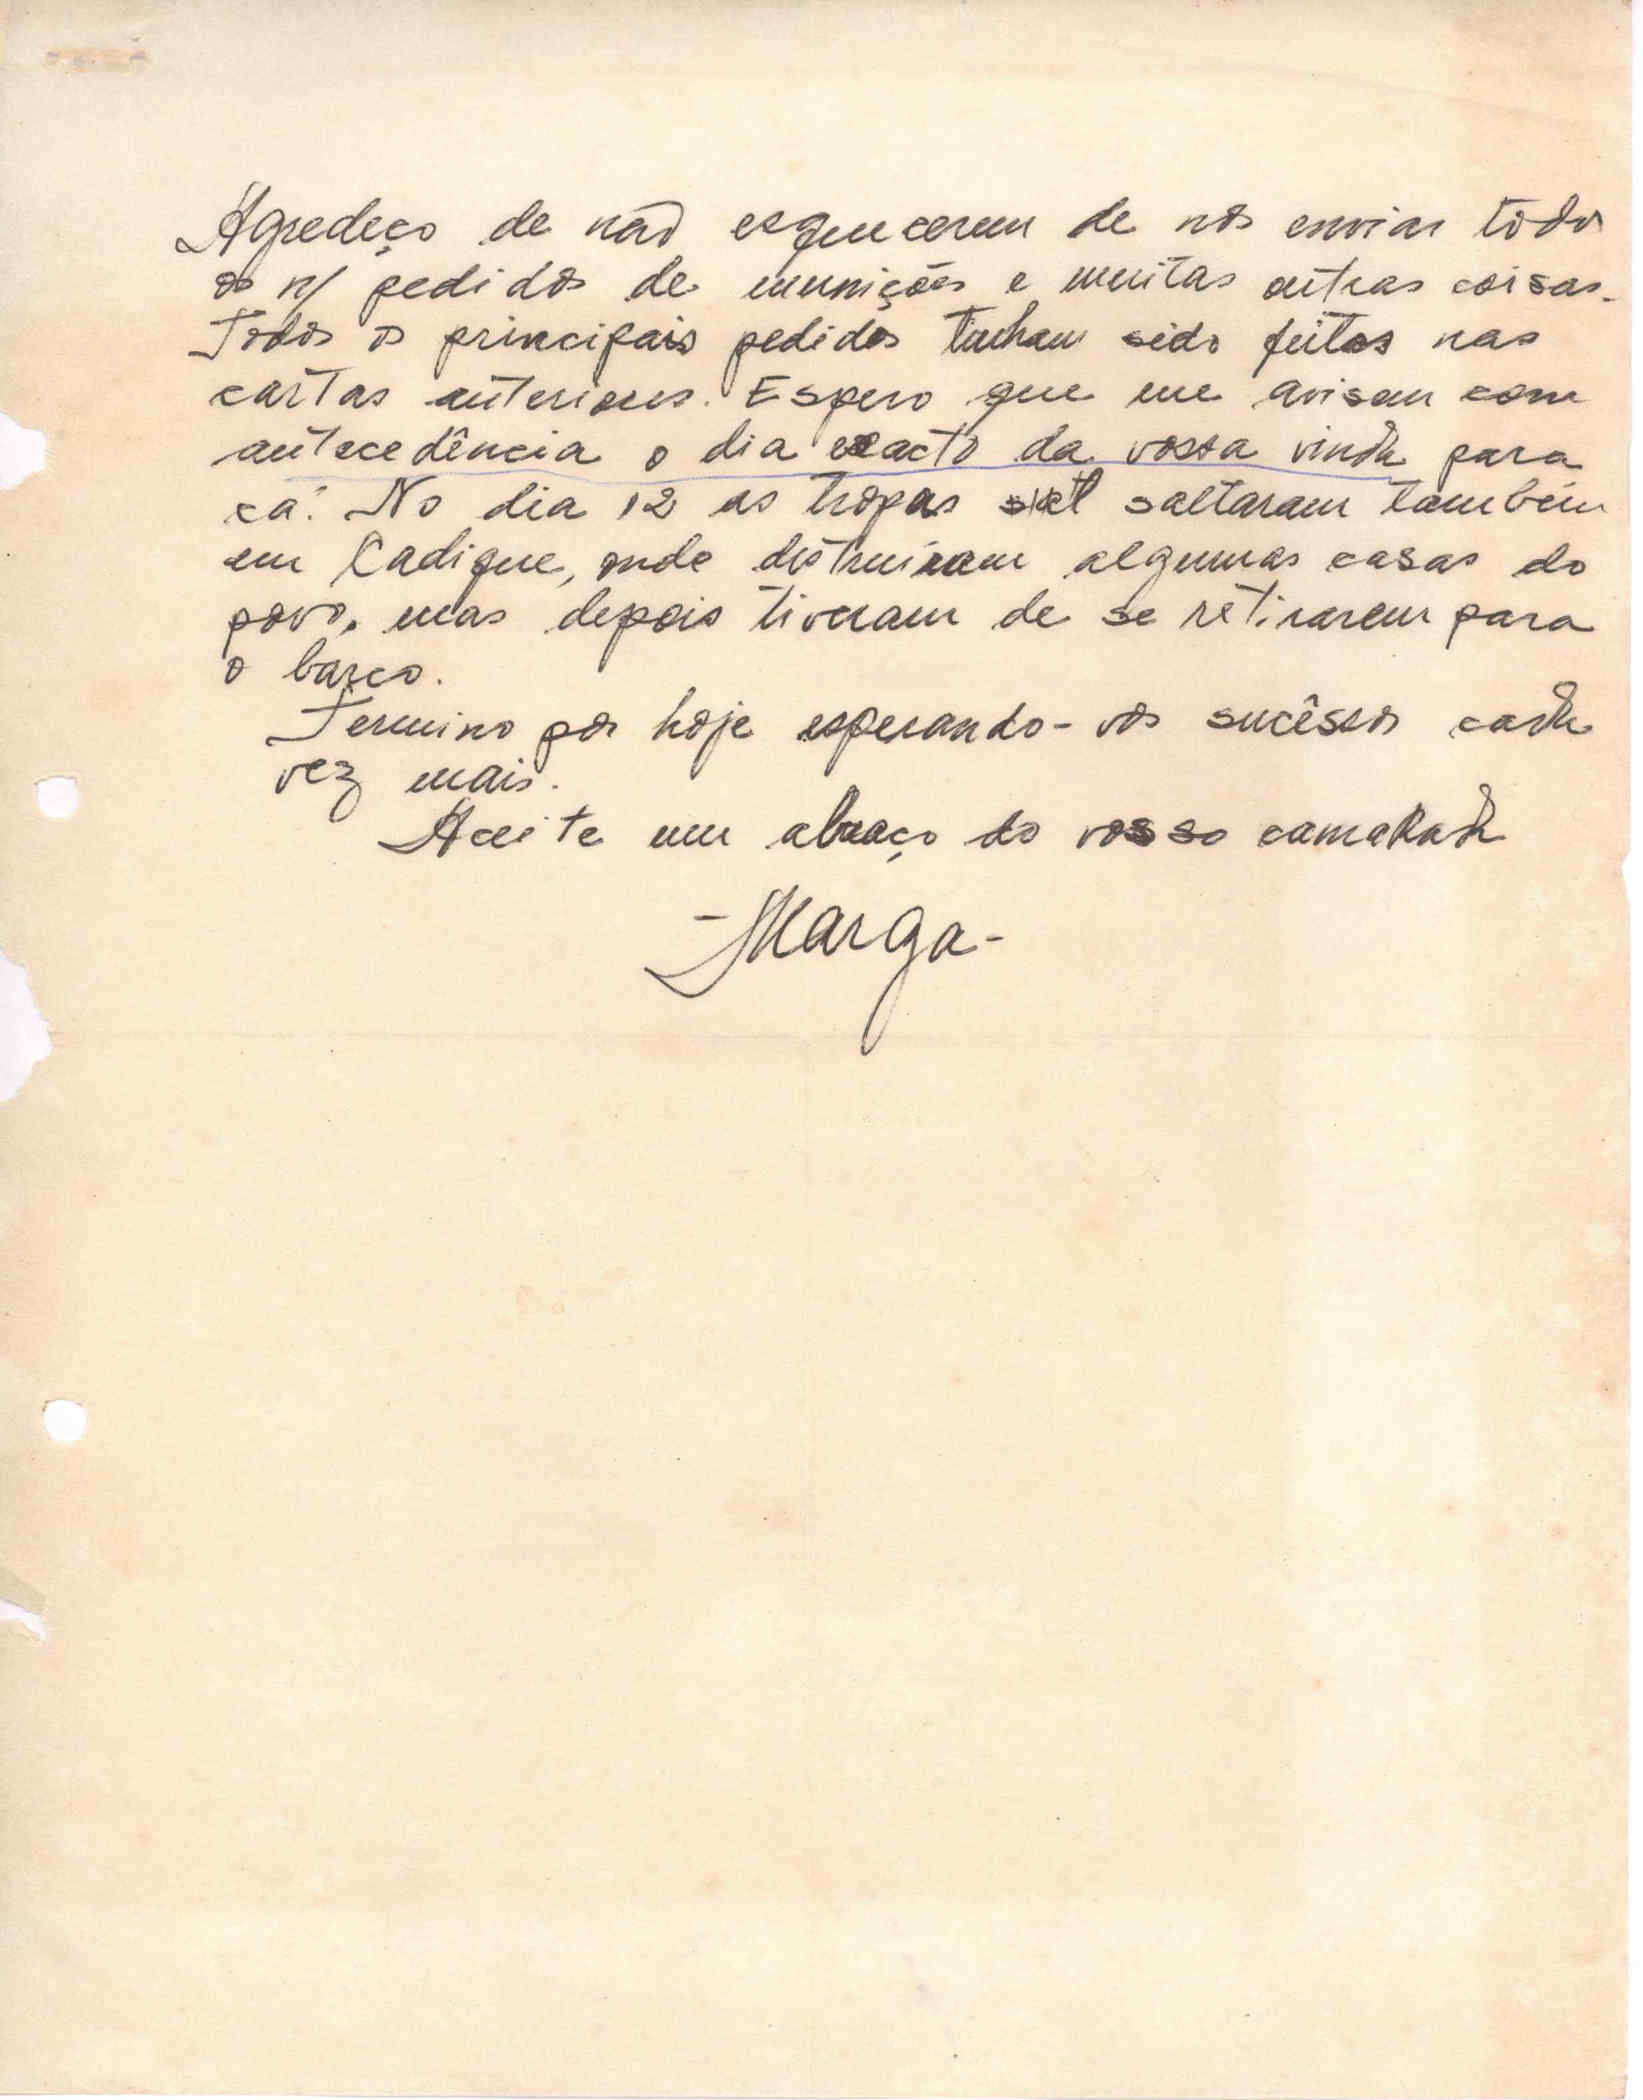 Agredeço de não esquecerem de nos enviar todos
os n/ pedidos de munições e muitas outras coisas.
Todos os principais pedidos tinham sido feitos nas
cartas anteriores. Espero que me avisem com
antecedência o dia exacto da vossa vinda para
cá. No dia 12 as tropas saltaram também
em Cadique, onde destruiram algumas casas do
povo, mas depois tiveram de se retirarem para
o barco.
Termino por hoje esperando-vos sucêssos cada
vez mais.
Aceite um abraço do vosso camarada
-Marga-